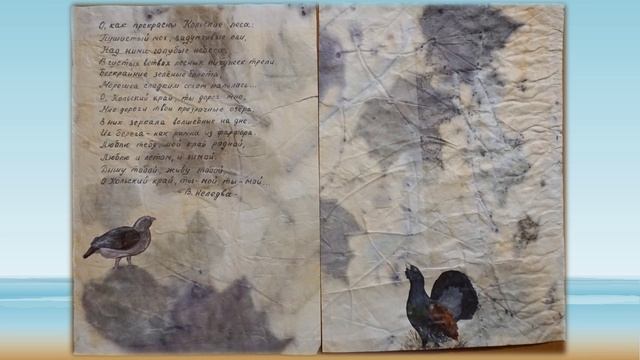 О, как прекрасны Кольские леса:
Пушистый мох, задумчивые ели,
Над ними голубые небеса,
В густых ветвях лесных пичужек трели.
Бескрайние зелёные болота,
Морошка сладким соком налилась...
О, Кольский край, ты дорог мне,
Мне дороги твои прозрачные озёра,
В них зеркала волшебные на дне,
Их берега - как рамка из фарфора.
Люблю тебя, мой край родной,
Люблю и летом, и зимой.
Дышу тобой, живу тобой
О Кольский край, ты - мой, ты - мой...
- В. Неледва -